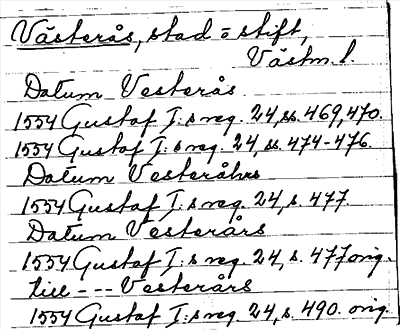 Västerås, stad o stift,
Västm. l.
Datum Vesterås
1554 Gustaf I:s reg. 24, ss. 469, 470.
1554 Gustaf I:s reg. 24, ss. 474-476.
Datum Vesteråhrs
1554 Gustaf I:s reg. 24, s. 477.
Datum Vesterårs
1554 Gustaf I:s reg. 24, s. 477 orig.
till --- Vesterårs
1554 Gustaf I:s reg. 24, s. 490. orig.